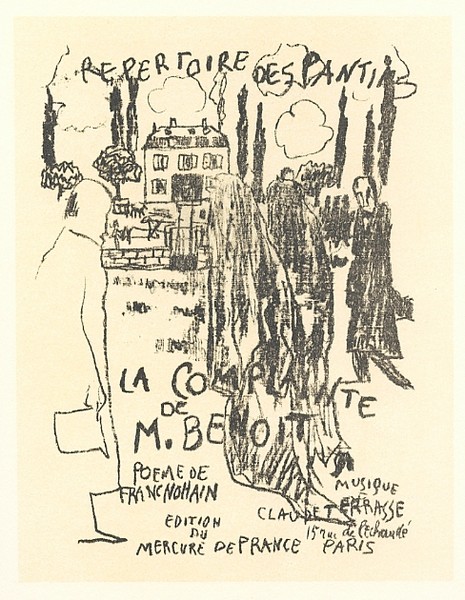 REPERTOIRE DES PANTINS
LA COMPLAINTE
DE
M. BENOIT
POEME DE
FRANCNOHAIN
MUSIQUE
CLAUDE TERRASSE
EDITION
DU
MERCURE DE FRANCE
15 rue de l'echaudé
PARIS